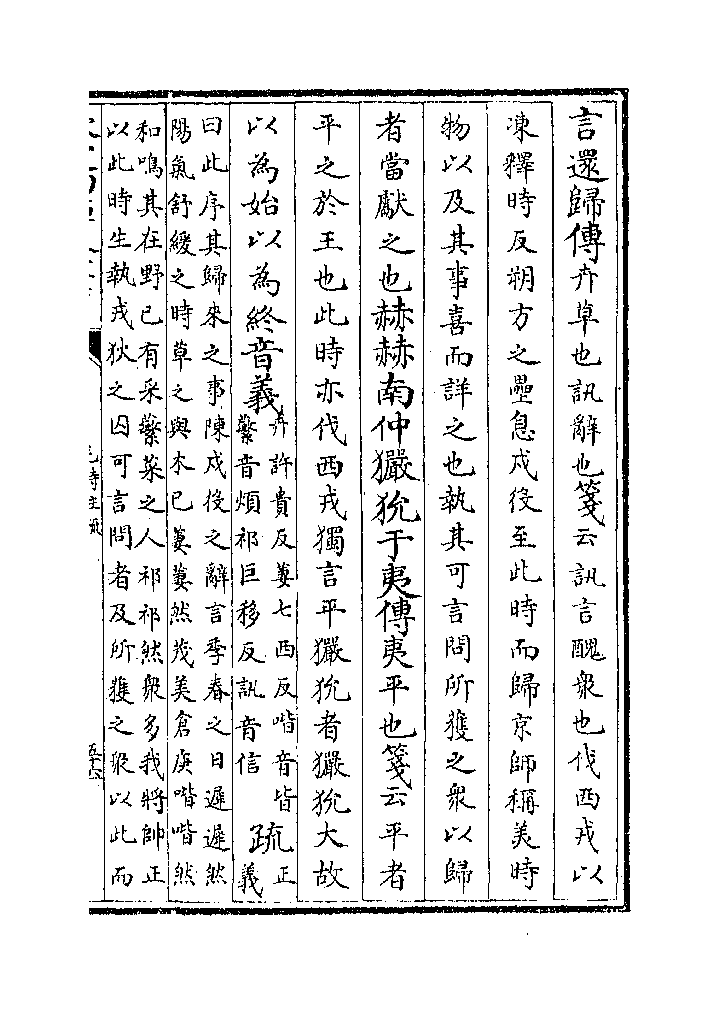 言還歸傳卉草也訊辭也箋云訊言醜衆也伐西戎以
凍釋時反朔方之壘息戍役至此時而歸京師稱美時
物以及其事喜而詳之也執其可言問所獲之衆以歸
者當獻之也赫赫南仲玁狁于夷傳夷平也箋云平者
平之於王也此時亦伐西戎獨言平玁狁者玁狁大故
以為始以為終音義
卉許貴反萋七西反喈音皆
蘩音煩祁巨移反訊音信
疏
正
義
曰此序其歸來之事陳戍役之辭言季春之日遲遲然
陽氣舒緩之時草之與木已萋萋然茂美倉庚喈喈然
和鳴其在野已有采蘩菜之人祁祁然衆多我將帥正
以此時生執戎狄之囚可言問者及所獲之衆以此而